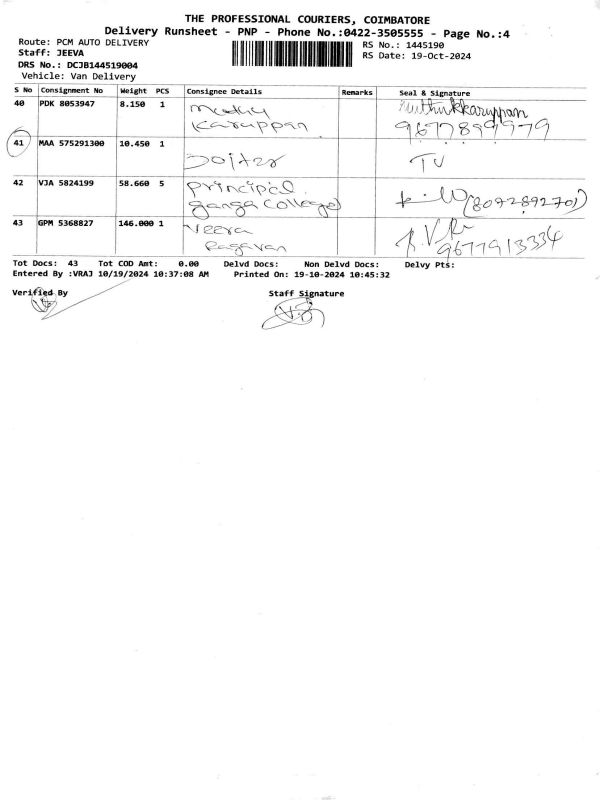 THE PROFESSIONAL COURIERS, COIMBATORE
Delivery Runsheet - PNP - Phone No.:0422-3505555 - Page No.:4
Route: PCM AUTO DELIVERY
RS No.: 1445190
Staff: JEEVA
RS Date: 19-Oct-2024
DRS No.: DCJB144519004
Vehicle: Van Delivery
S No Consignment No Weight PCS Consignee Details Remarks Seal & Signature
40 PDK 8053947 8.150 1 Muthu Muthukkaruppan
Karuppan 9677899979
41 MAA 575291300 10.450 1
42 VJA 5824199 58.660 5 principal
ganga college) (8092892701)
43 GPM 5368827 146.000 1 Veera
Ragavan 9677913334
Tot Docs: 43 Tot COD Amt: 0.00 Delvd Docs: Non Delvd Docs: Delvy Pts:
Entered By :VRAJ 10/19/2024 10:37:08 AM Printed On: 19-10-2024 10:45:32
Verified By Staff Signature